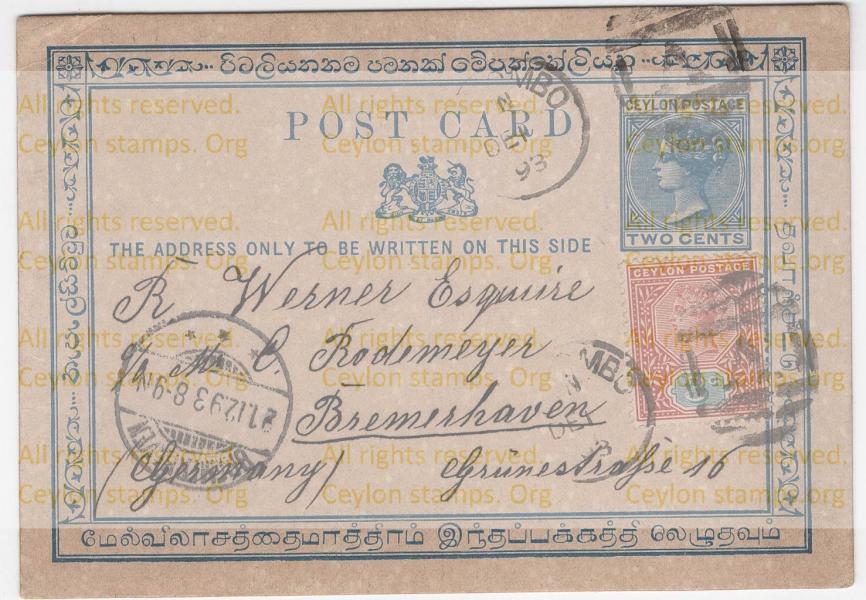 පිටලියනතම පමනක් මේපත්තේලියන
POST CARD
CEYLON POSTAGE
TWO CENTS
THE ADDRESS ONLY TO BE WRITTEN ON THIS SIDE
CEYLON POSTAGE
R Werner Esquire
c/o M. C. Rodemeyer
Bremerhaven
(Germany) Grünestraße 16
MBO
N
DE
93
MBO
N
DE
93
21.12.93.8-9 N.
மேல்விலாசத்தைமாத்திரம் இந்தப்பக்கத்தி லெழுதவும்
All rights reserved.
Ceylon stamps. Org
All rights reserved.
Ceylon stamps. Org
All rights reserved.
Ceylon stamps. Org
All rights reserved.
Ceylon stamps. Org
All rights reserved.
Ceylon stamps. Org
All rights reserved.
Ceylon stamps. Org
All rights reserved.
Ceylon stamps. Org
All rights reserved.
Ceylon stamps. Org
All rights reserved.
Ceylon stamps. Org
All rights reserved.
Ceylon stamps. Org
All rights reserved.
Ceylon stamps. Org
All rights reserved.
Ceylon stamps. Org